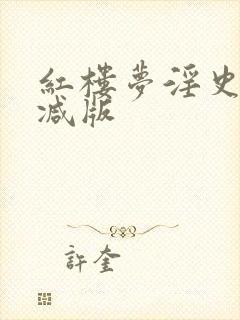 紅樓夢淫史
减版
許奎